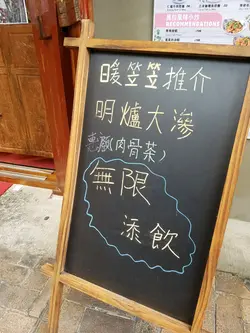 風味小炒
RECOMMENDATIONS
暖笠笠推介
明爐大滲
(肉骨茶)
無限
添飲